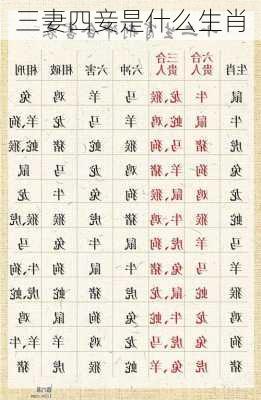 三妻四妾是什么生肖
生肖 六合贵人 三合贵人 六冲 六害 相破 相刑
鼠 牛 龙,猴 马 羊 鸡 兔
牛 鼠 蛇,鸡 羊 马 龙 羊,狗
虎 猪 马,狗 猴 蛇 猪 蛇,猴
兔 狗 羊,猪 鸡 龙 马 鼠
龙 鸡 鼠,猴 狗 兔 牛 龙
蛇 猴 牛,鸡 猪 虎 猴 猴,虎
马 羊 虎,狗 鼠 牛 兔 马
羊 马 兔,猪 牛 鼠 狗 牛,狗
猴 蛇 鼠,龙 虎 猪 蛇 虎,蛇
鸡 龙 牛,蛇 兔 狗 鼠 鸡
狗 兔 虎,马 龙 鸡 羊 牛,羊
猪 虎 兔,羊 蛇 猴 虎 猪